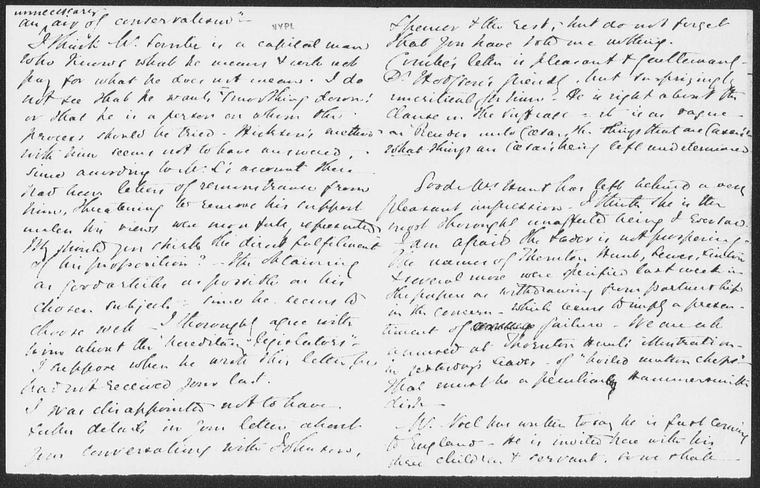 unnecessarily
an air of conservatism"-
NYPL
I think Mr. Lombe is a capital man
who knows what he means & will not
pay for what he does not mean. I do
not see that he wants "smoothing down"
or that he is a person on whom this
process should be tried - Hickson's method
with him seems not to have answered,
since according to Mr. L's account there
had been letters of remonstrance from
him, threatening to remove his support
unless his views were more fully represented
Why should you shirk the direct fulfilment
of his proposition? - the obtaining
as good articles as possible on his
chosen subjects - since he seems to
choose well - I thoroughly agree with
him about the "hereditary legislators"-
I suppose when he wrote this letter he
had not received your last.
I was disappointed not to have
fuller details in your letter about
your conversations with Johnson,
Spencer & the rest, - but do not forget
that you have told me nothing.
Combe's letter is pleasant & gentlemanly -
Dr Hodgson's friendly, but surprisingly
uncritical for him - He is right about the
clause on the Suffrage - it is as vague
as Render unto Caesar, the things that are Caesar's
what things are Caesar's being left undetermined
Good Mrs Hunt has left behind a very
pleasant impression. I think she is the
most thoroughly unaffected being I ever saw.
I am afraid the Leader is not prospering -
The names of Thornton Hunt, Lewes, Linton
& several more were specified last week in
the papers as withdrawing from partnership
in the concern - which seems to imply a presen-
timent of failure - We are all
amused at Thornton Hunt's illustration
in yesterday's Leader - of "boiled mutton chops"-
that must be a peculiarly Hammersmith
dish -
Mr. Noel has written to say he is just coming
to England - He is invited here with his
three children & servant, so we shall